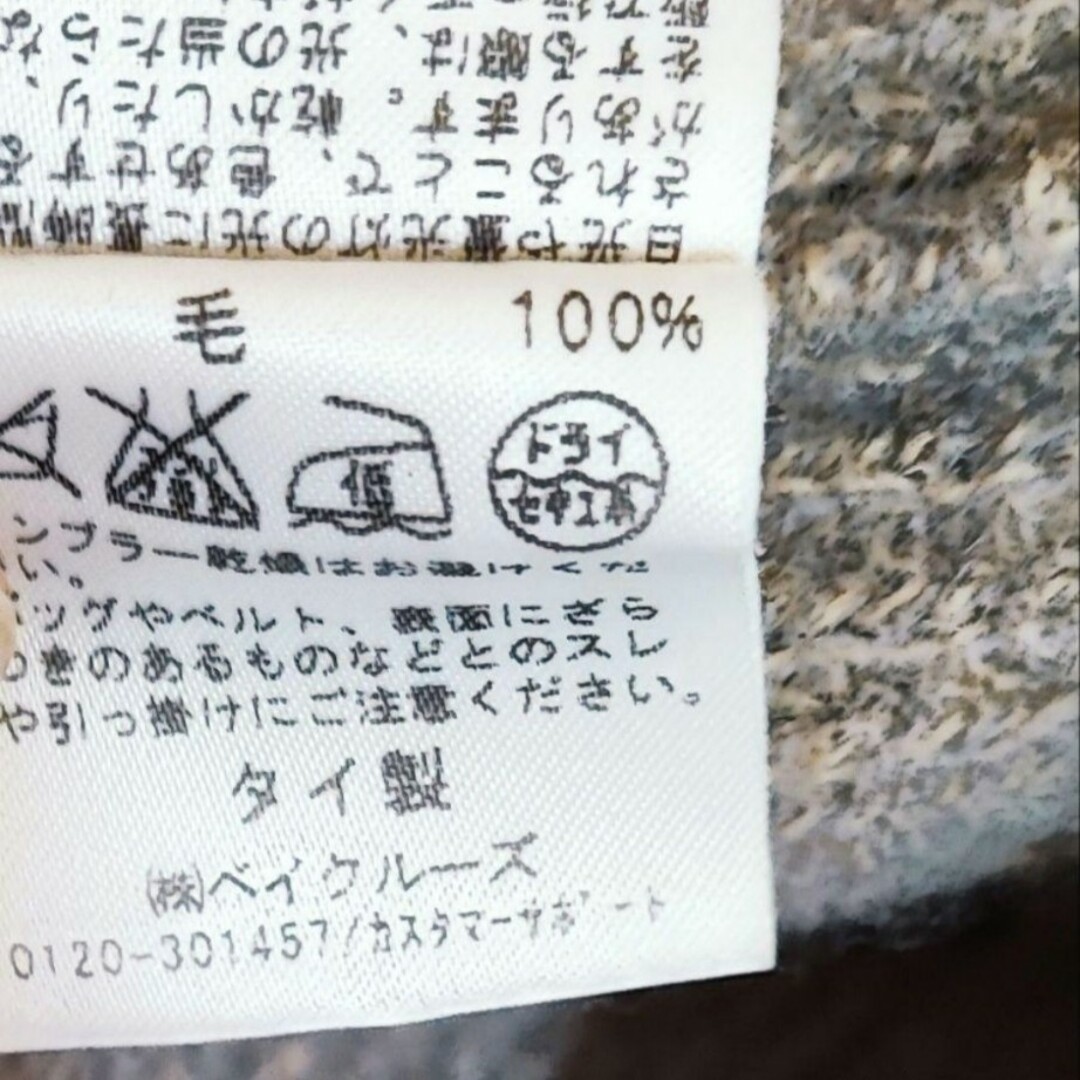 をする際は、光の当たらな
があります。乾かしたり、
されることで、色あせする
日光や蛍光灯の光に長時間
毛 100%
低 ドライ セキユ系
ンブラー乾燥はお避けくだ
い。
ッグやベルト、表面にざら
つきのあるものなどとのスレ
や引っ掛けにご注意ください。
タイ製
㈱ベイクルーズ
0120-301457/カスタマーサポート